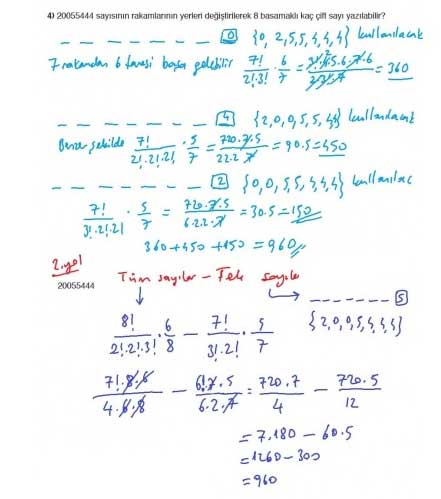 4) 20055444 sayısının rakamlarının yerleri değiştirilerek 8 basamaklı kaç çift sayı yazılabilir?
_ _ _ _ _ _ _ 0 {0, 2, 5, 5, 4, 4, 4} kullanılacak
7 rakamdan 6 tanesi başa gelebilir 7!/2!·3! · 6/7 = = 360
_ _ _ _ _ _ _ 4 {2, 0, 0, 5, 5, 4, 4} kullanılacak
Benzer şekilde 7!/2!·2!·2! · 5/7 = 720·7·5/2·2·2·7 = 90·5 = 450
_ _ _ _ _ _ _ 2 {0, 0, 5, 5, 4, 4, 4} kullanılac
7!/3!·2!·2! · 5/7 = 720·7·5/6·2·2·7 = 30·5 = 150
360 + 450 + 150 = 960
2.yol
Tüm sayılar – Tek sayılar
20055444
_ _ _ _ _ _ _ 5
{2, 0, 0, 5, 4, 4, 4}
8!/2!·2!·3! · 6/8 – 7!/3!·2! · 5/7
7!·8·6/4·6·8 – 6!·7·5/6·2·7 = 720·7/4 – 720·5/12
= 7·180 – 60·5
= 1260 – 300
= 960